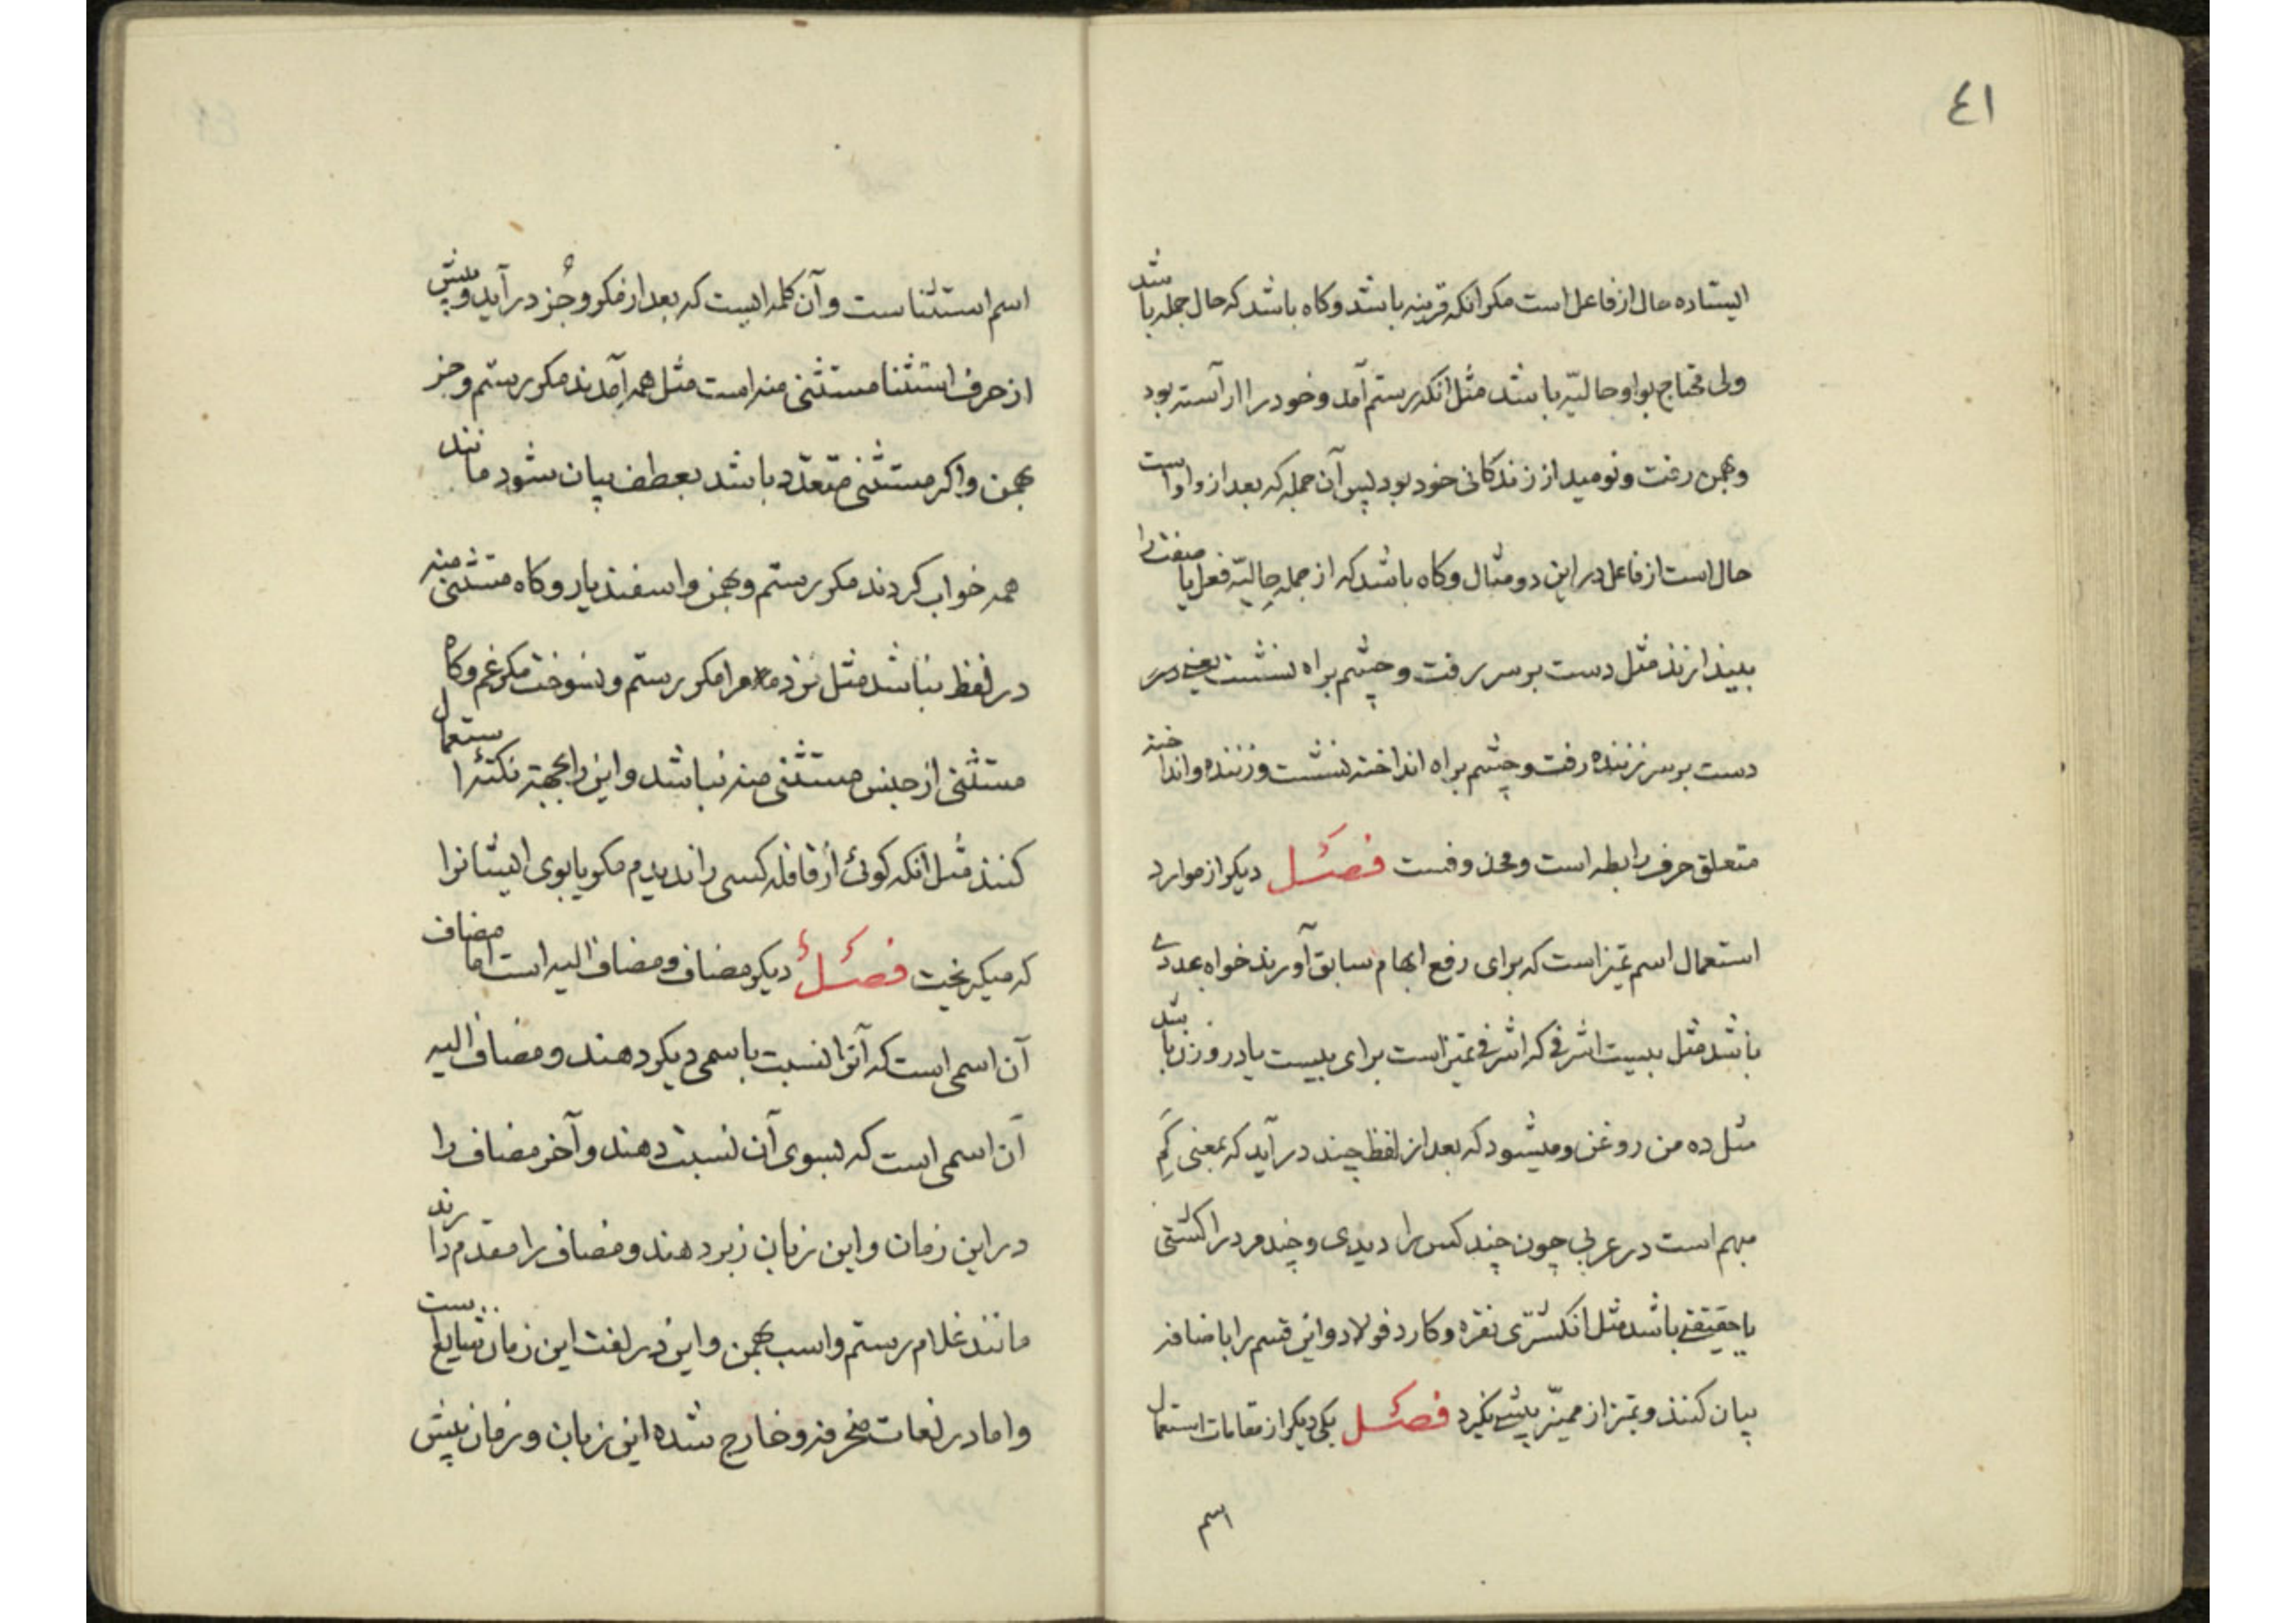 ٤١
ایستاده حال از فاعل است مکر انکه قرینه باشد و کاه باشد که حال جمله باشد
ولی محتاج بواو حالیّه باشد مثل انکه رستم آمد و خود را اراسته بود
و بهمن رفت و نومید از زندکانی خود بود پس آن جمله که بعد از واو است
حال است از فاعل در این دو مثال و کاه باشد که از جمله حالیّه فعل یا صفت را
بیندازند مثل دست بر سر رفت و چشم براه نشست یعنی در
دست بر سر زننده رفت و چشم براه انداخته نشست و زننده و انداخته
متعلق حرف رابطه است و محذوفست فصل دیکر از موارد
استعمال اسم تمیز است که برای رفع ابهام سابق آورند خواه عددی
باشد مثل بیست اشرفی که اشرفی تمیز است برای بیست یا در وزن باشد
مثل ده من روغن و میشود که بعد از لفظ چند در آید که بمعنی کَمِ
مبهم است در عربی چون چند کس را دیدی و چند مرد را کشتی
یا حقیقتی باشد مثل انکشتری نقره و کارد فولاد و این قسم را باضافه
بیان کنند و تمیز از ممیّز پیشی نکیرد فصل یکی دیکر از مقامات استعمال
اسم
اسم استثنا است و آن کلمه ایست که بعد از مکر و جُز در آید و پیش
از حرف استثنا مستثنی منه است مثل همه آمدند مکر رستم و جز
بهمن و اکر مستثنی متعدّد باشد بعطف بیان شود مانند
همه خواب کردند مکر رستم و بهمن و اسفندیار و کاه مستثنی منه
در لفظ نباشد مثل نزد مرا مکر رستم و نسوخت مکر غم و کاه
مستثنی از جنس مستثنی منه نباشد و این را بجهة نکتهٔ استعمال
کنند مثل انکه کوئی از قافله کسی را ندیدم مکر یابوی ایشانرا
که میکریخت فصل دیکر مضاف و مضاف الیه است اما مضاف
آن اسمی است که آنرا نسبت باسمی دیکر دهند و مضاف الیه
آن اسمی است که بسوی آن نسبت دهند و آخر مضاف را
در این زمان و این زبان زیر دهند و مضاف را مقدم دارند
مانند غلام رستم و اسب بهمن و این در لغت این زمان شایع است
و اما در لغات منحرفه و خارج شده این زبان و زمان پیش